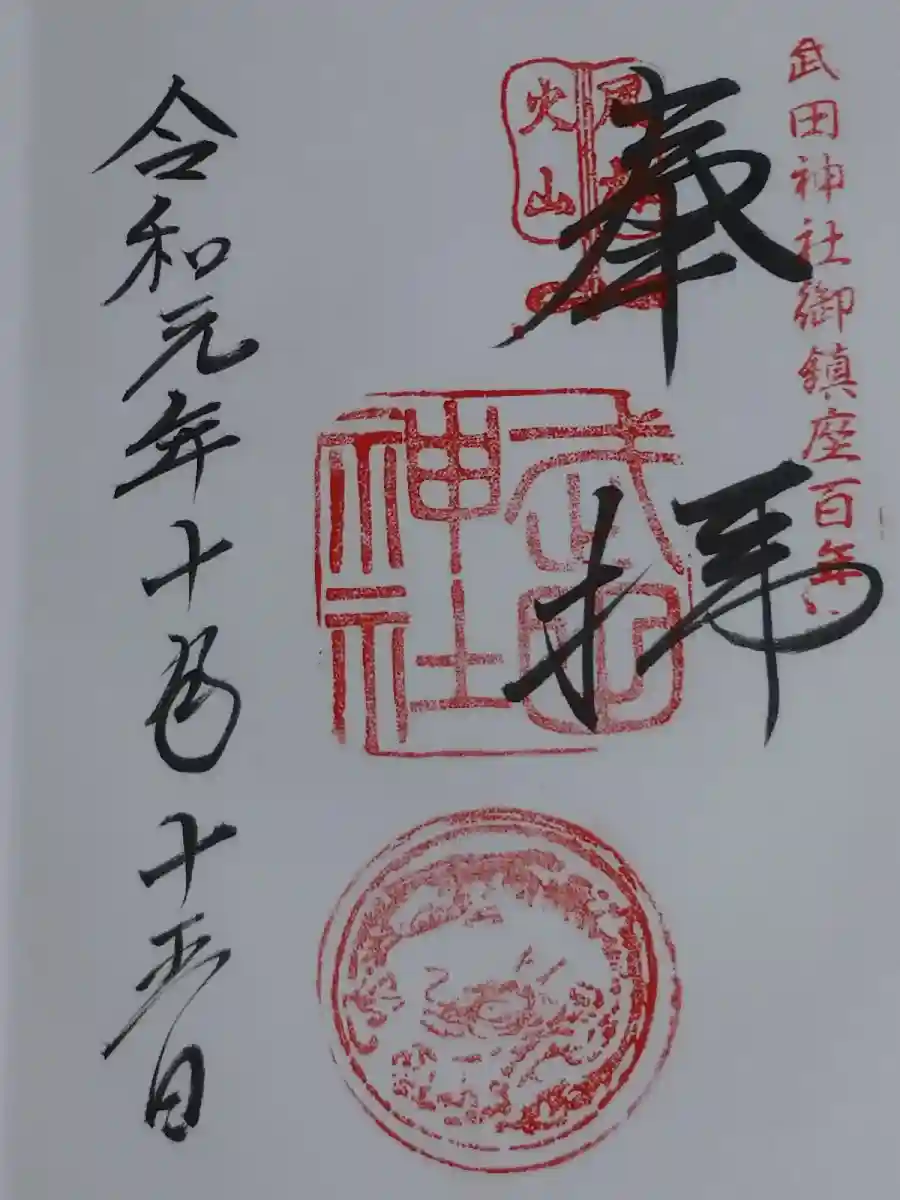 武田神社御鎮座百年
風林
火山
奉拝
武田
神社
令和元年十月十五日